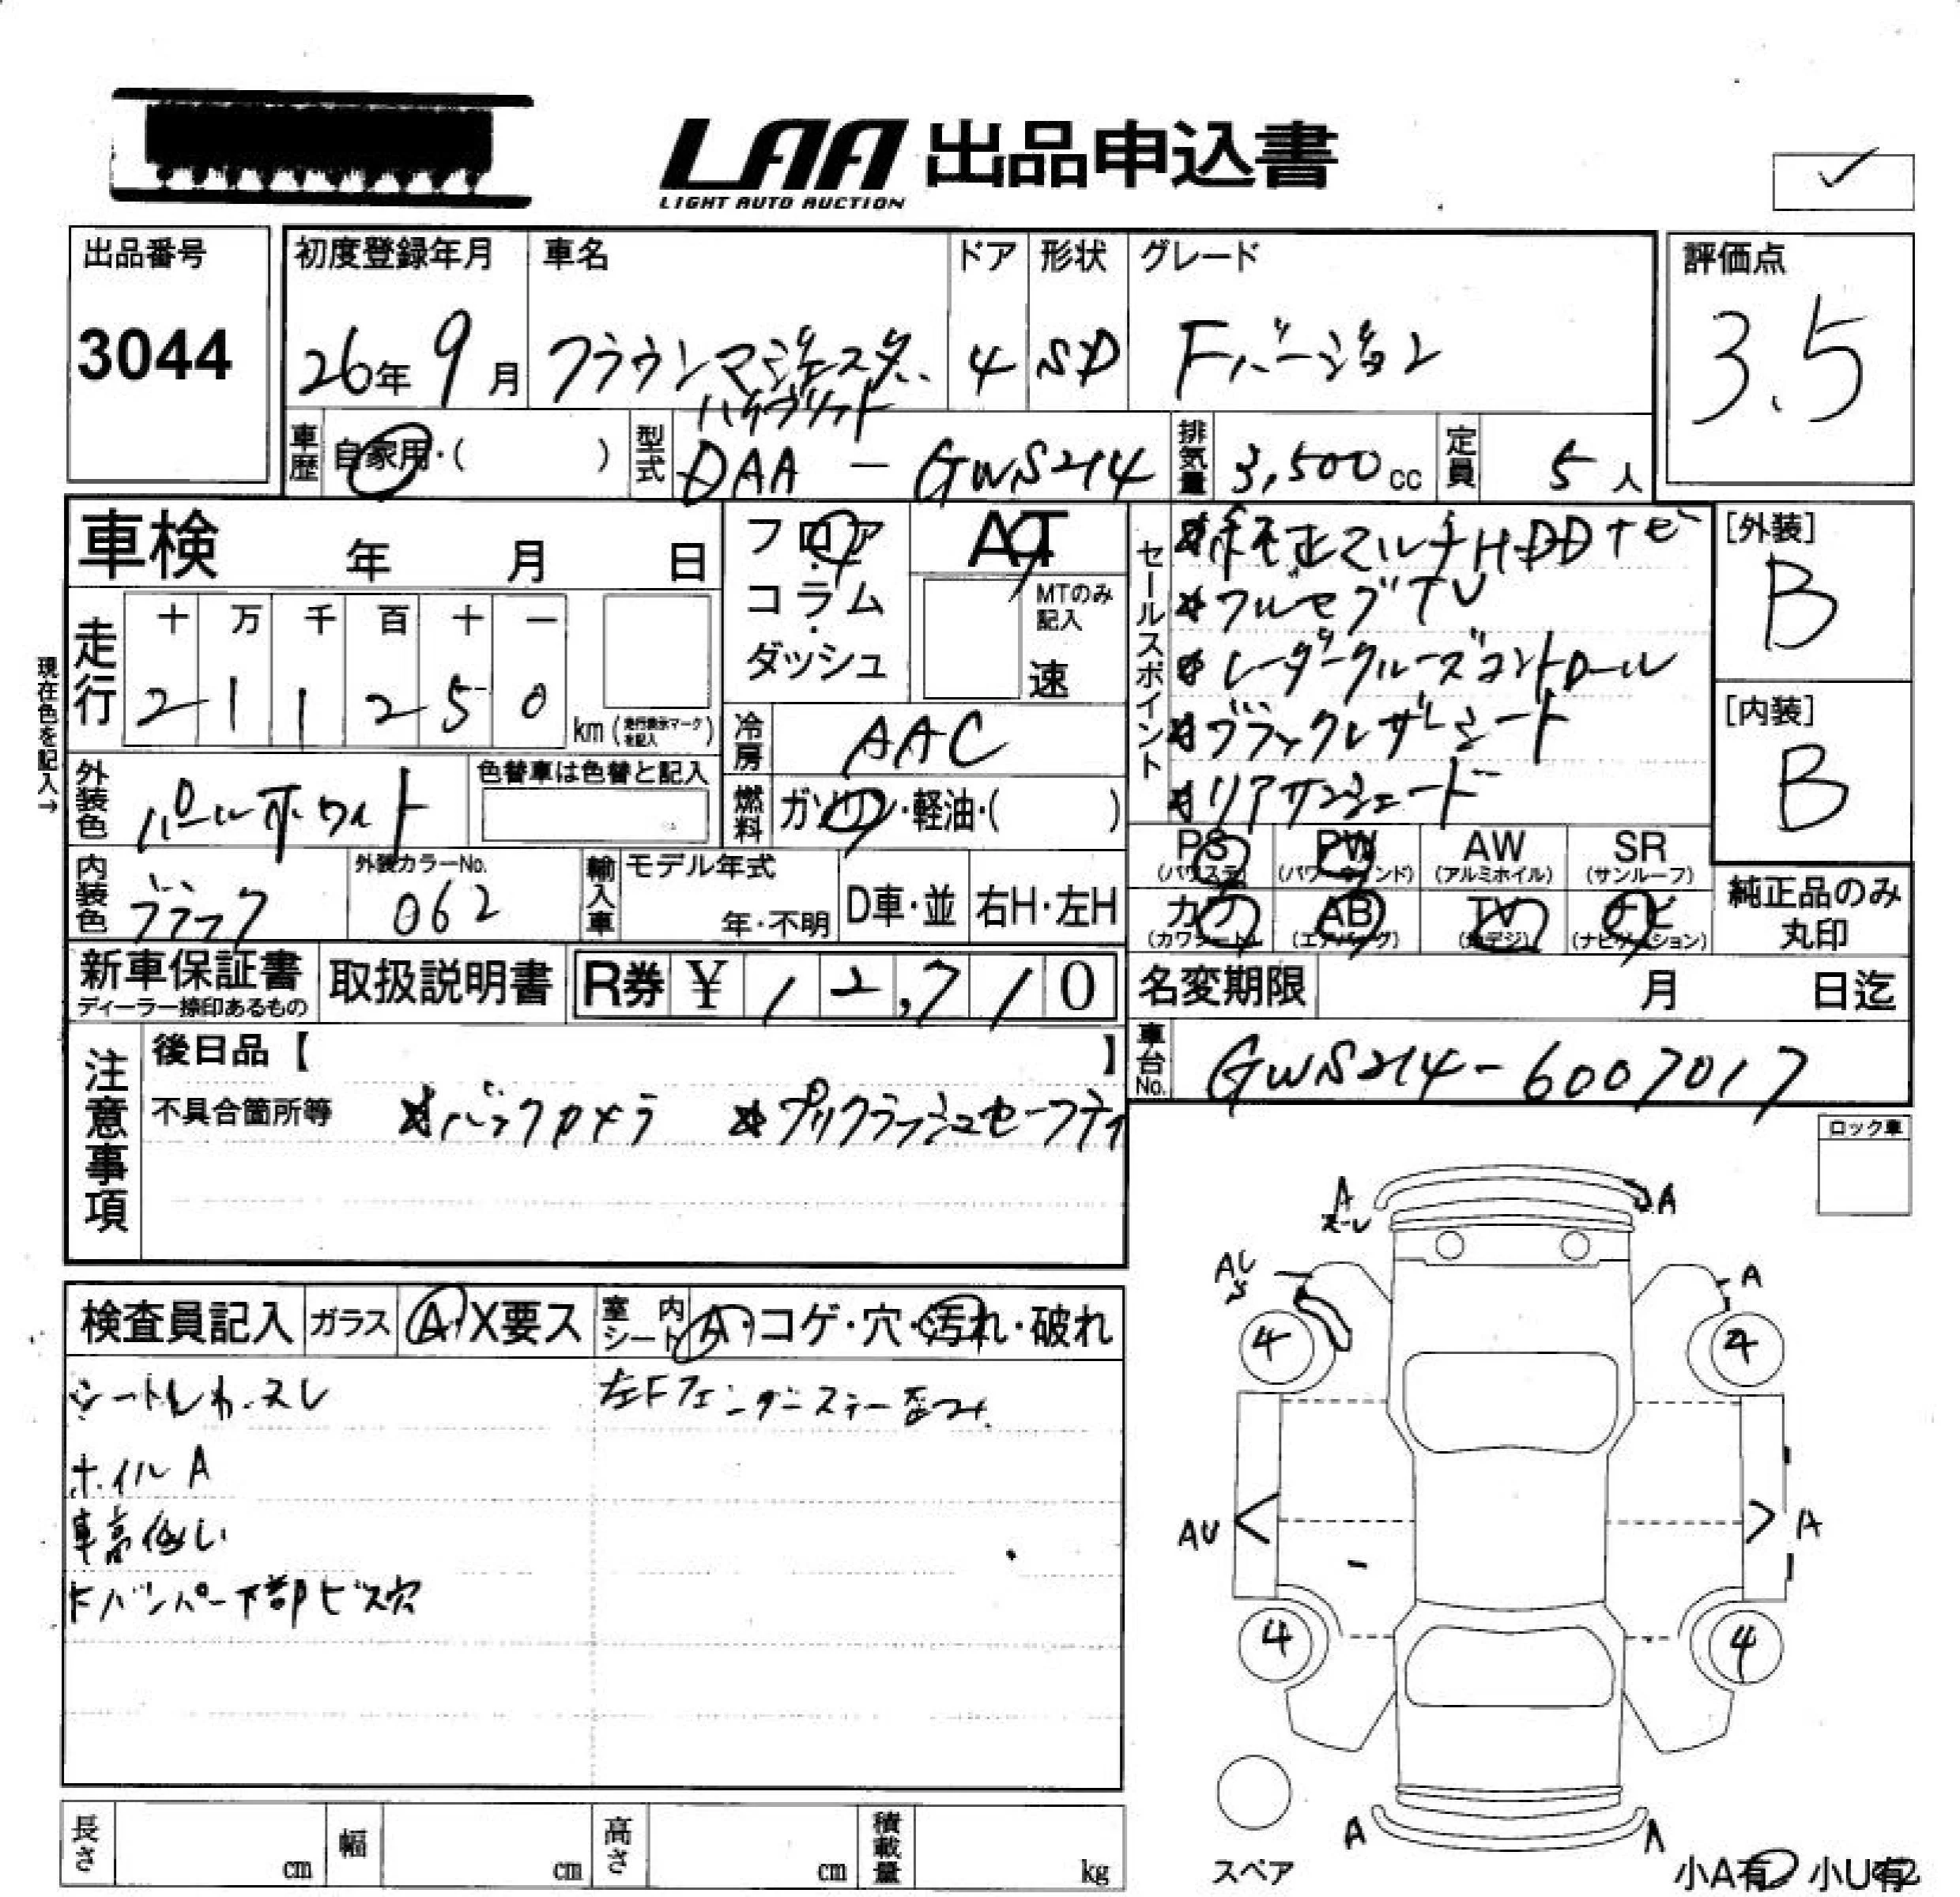 LAA 出品申込書
LIGHT AUTO AUCTION
出品番号
3044
初度登録年月
26年 9月
車名
クラウンマジェスタ
ハイブリット
ドア
4
形状
SD
グレード
Fバージョン
評価点
3.5
車歴 自家用・( )
型式 DAA - GWS214
排気量 3,500cc
定員 5人
車検 年 月 日
フロア
コラム
・
ダッシュ
AT
MTのみ
記入
速
現在色を記入→
走行
十 万 千 百 十 一
2 1 1 2 5 0
km (走行表示マークを記入)
冷房 AAC
外装色 パールホワイト
色替車は色替と記入
燃料 ガソリン・軽油・( )
内装色 ブラック
外装カラーNo.
062
輸入車
モデル年式
年・不明
D車・並
右H・左H
新車保証書
ディーラー捺印あるもの
取扱説明書
R券 ¥ 12,710
セールスポイント
純正マルチHDDナビ
フルセグTV
レーダークルーズコントロール
ブラックレザーシート
リアサンシェード
[外装]
B
[内装]
B
PS
(パワステ)
PW
(パワーウインド)
AW
(アルミホイル)
SR
(サンルーフ)
カワ
(カワシート)
AB
(エアバッグ)
TV
(地デジ)
ナビ
(ナビゲーション)
純正品のみ
丸印
名変期限 月 日迄
車台No. GWS214-6007017
注意事項
後日品【 】
不具合箇所等 バックカメラ プリクラッシュセーフティ
ロック車
検査員記入
ガラス A・X要ス
室内シート A・コゲ・穴・汚れ・破れ
シートしわ.スレ
左Fフェンダーステー歪み
ホイルA
車高低い
Fバンパー下部ビス穴
A
スーレ
A
AU
A
4
4
AU
A
4
4
A
A
スペア
小A有 小U有
長さ cm
幅 cm
高さ cm
積載量 kg